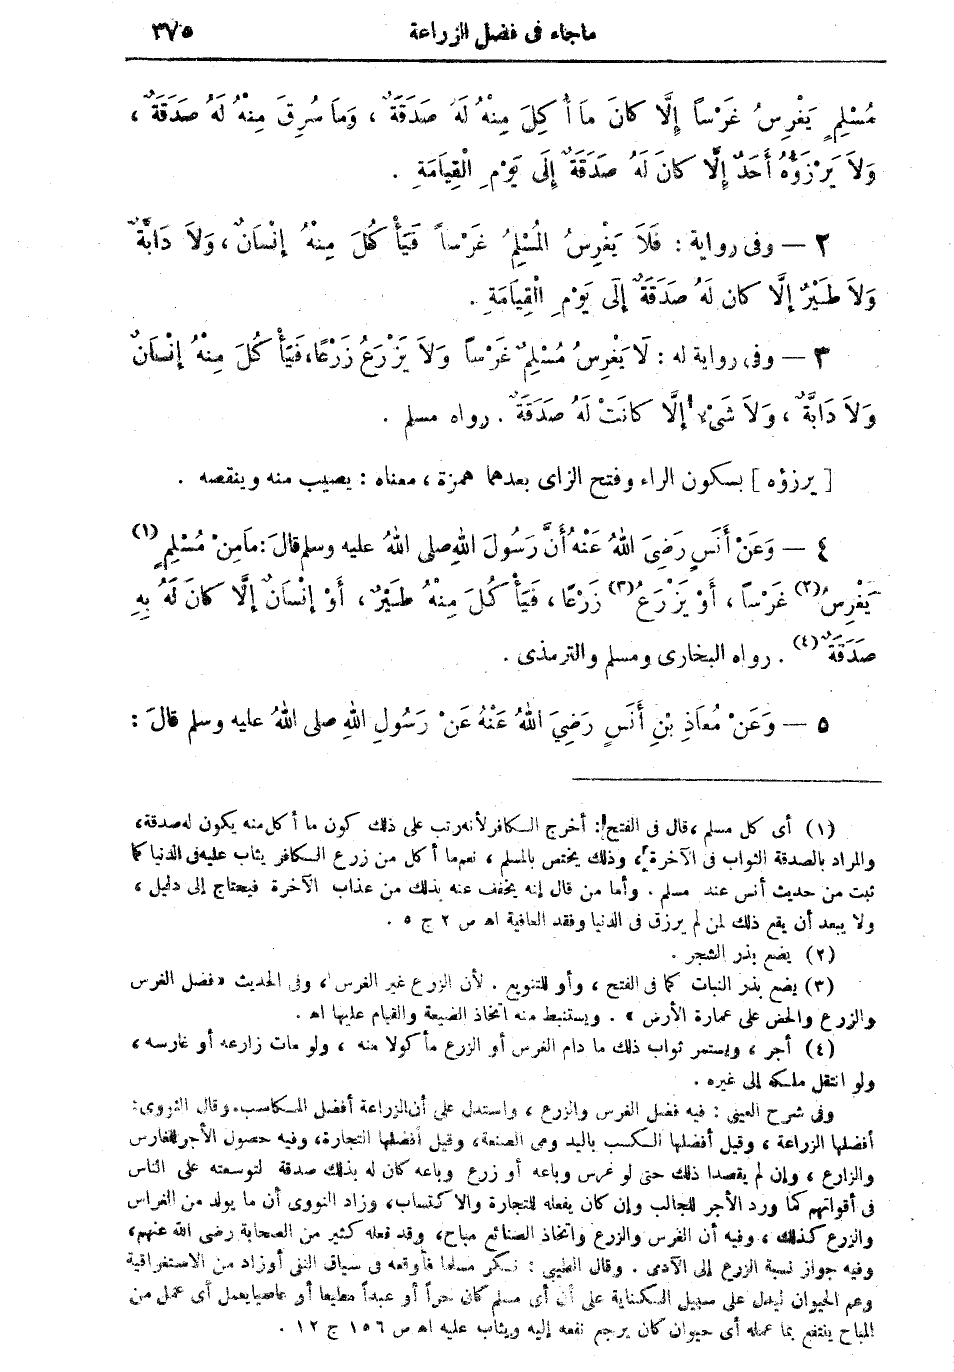 ماجاء فى فضل الزراعة ٣٧٥
مُسْلِمٍ يَغْرِسُ غَرْساً إِلَّا كانَ مَا أُكِلَ مِنْهُ لَهُ صَدَقَةٌ ، وَمَا سُرِقَ مِنْهُ لَهُ صَدَقَةٌ ،
وَلاَ يَرْزَؤُهُ أَحَدٌ إِلَّا كانَ لَهُ صَدَقَةٌ إِلَى يَوْمِ الْقِيَامَةِ .
٢ — وفى رواية : فَلاَ يَغْرِسُ المُسْلِمُ غَرْساً فَيَأْكُلَ مِنْهُ إِنْسَانٌ ، وَلاَ دَابَّةٌ
وَلاَ طَيْرٌ إِلَّا كان لَهُ صَدَقَةٌ إِلَى يَوْمِ القِيَامَةِ .
٣ — وفى رواية له : لاَ يَغْرِسُ مُسْلِمٌ غَرْساً وَلاَ يَزْرَعُ زَرْعًا، فَيَأْكُلَ مِنْهُ إِنْسَانٌ
وَلاَ دَابَّةٌ ، وَلاَ شَىْءٌ إِلَّا كانَتْ لَهُ صَدَقَةٌ . رواه مسلم .
[ يرزؤه ] بسكون الراء وفتح الزاى بعدهما همزة ، معناه : يصيب منه وينقصه .
٤ — وَعَنْ أَنَسٍ رَضِىَ اللهُ عَنْهُ أَنَّ رَسُولَ اللهِ صلى اللهُ عليه وسلم قالَ : مَا مِنْ مُسْلِمٍ (١)
يَغْرِسُ (٢) غَرْساً ، أَوْ يَزْرَعُ (٣) زَرْعًا ، فَيَأْكُلَ مِنْهُ طَيْرٌ ، أَوْ إِنْسَانٌ إِلَّا كانَ لَهُ بِهِ
صَدَقَةٌ (٤) . رواه البخارى ومسلم والترمذى .
٥ — وَعَنْ مُعَاذِ بْنِ أَنَسٍ رَضِيَ اللهُ عَنْهُ عَنْ رَسُولِ اللهِ صلى اللهُ عليه وسلم قالَ :
(١) أى كل مسلم ، قال فى الفتح : أخرج الكافر لأنه رتب على ذلك كون ما أكل منه يكون له صدقة ،
والمراد بالصدقة الثواب فى الآخرة ، وذلك يختص بالمسلم ، نعم ما أكل من زرع الكافر يثاب عليه فى الدنيا كما
ثبت من حديث أنس عند مسلم . وأما من قال إنه يخفف عنه بذلك من عذاب الآخرة فيحتاج إلى دليل ،
ولا يبعد أن يقع ذلك لمن لم يرزق فى الدنيا وفقد العافية اه ص ٢ ج ٥ .
(٢) يضع بذر الشجر .
(٣) يضع بذر النبات كما فى الفتح ، وأو للتنويع . لأن الزرع غير الغرس ، وفى الحديث « فضل الغرس
والزرع والحض على عمارة الأرض » . ويستنبط منه اتخاذ الضيعة والقيام عليها اه .
(٤) أجر ، ويستمر ثواب ذلك ما دام الغرس أو الزرع مأكولا منه ، ولو مات زارعه أو غارسه ،
ولو انتقل ملكه إلى غيره .
وفى شرح العينى : فيه فضل الغرس والزرع ، واستدل على أن الزراعة أفضل المكاسب . وقال النووى :
أفضلها الزراعة ، وقيل أفضلها الكسب باليد وهى الصنعة ، وقيل أفضلها التجارة ، وفيه حصول الأجر للغارس
والزارع ، وإن لم يقصدا ذلك حتى لو غرس وباعه أو زرع وباعه كان له بذلك صدقة لتوسعته على الناس
فى أقواتهم كما ورد الأجر للجالب وإن كان يفعله للتجارة والاكتساب ، وزاد النووى أن ما يولد من الغراس
والزرع كذلك ، وفيه أن الغرس والزرع واتخاذ الصنائع مباح ، وقد فعله كثير من الصحابة رضى الله عنهم ،
وفيه جواز نسبة الزرع إلى الآدمى . وقال الطيبى : نكر مسلما فأوقعه فى سياق النفى أوزاد من الاستغراقية
وعم الحيوان ليدل على سبيل الكناية على أن أى مسلم كان حراً أو عبداً مطيعا أو عاصيا يعمل أى عمل من
المباح ينتفع بما عمله أى حيوان كان يرجع نفعه إليه ويثاب عليه اه ص ١٥٦ ج ١٢ .